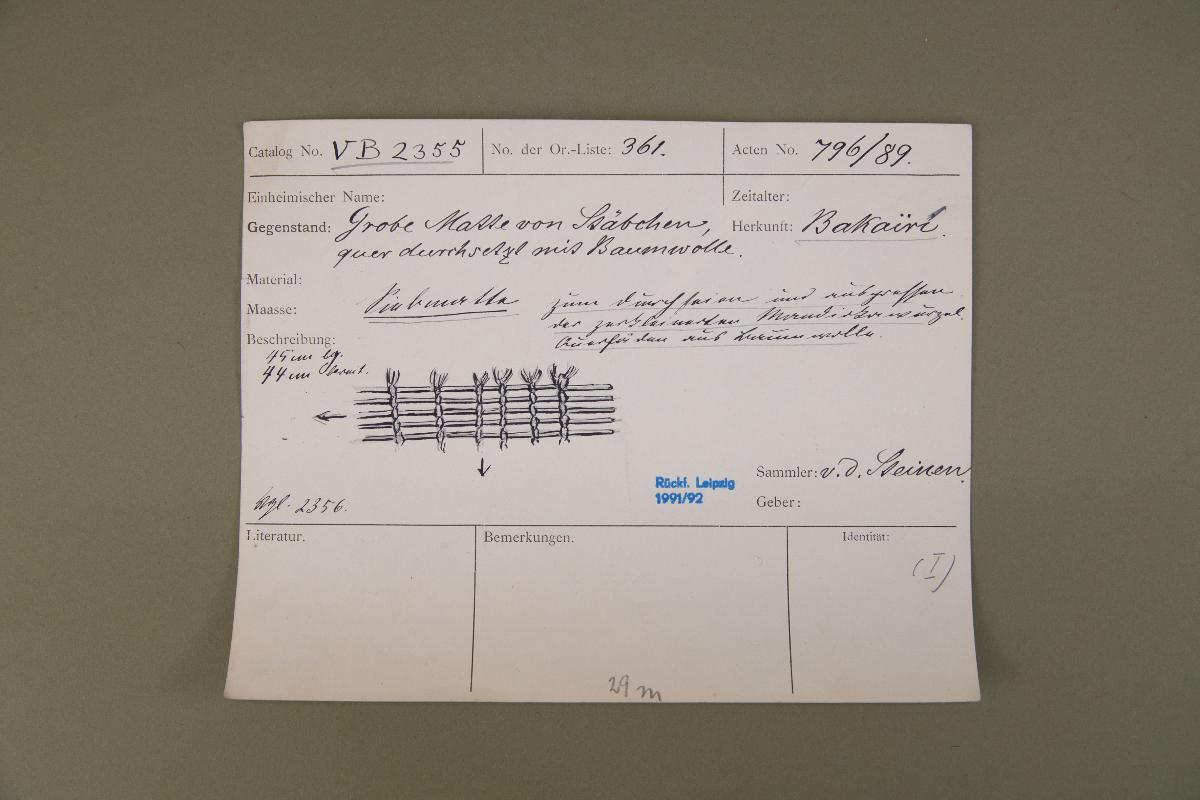 Catalog No. VB 2355
No. der Or.-Liste: 361.
Acten No. 796/89.
Einheimischer Name:
Zeitalter:
Gegenstand: Grobe Matte von Stäbchen,
quer durchsetzt mit Baumwolle.
Herkunft: Bakaïri.
Material:
Siebmatte
zum Durchseien und auspressen
der zerkleinerten Mandiokawurzel.
Querfäden aus Baumwolle.
Maasse:
Beschreibung:
45 cm lg.
44 cm breit.
Vgl. 2356.
Rückf. Leipzig
1991/92
Sammler: v. d. Steinen.
Geber:
Literatur.
Bemerkungen.
Identität:
(I)
29 m